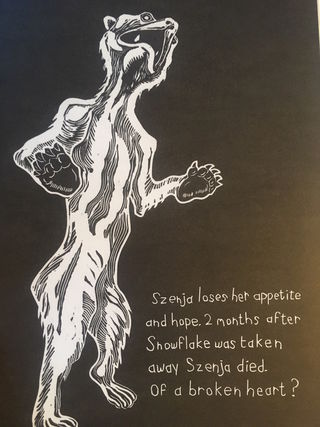 Szenja loses her appetite
and hope. 2 months after
Snowflake was taken
away Szenja died.
Of a broken heart?